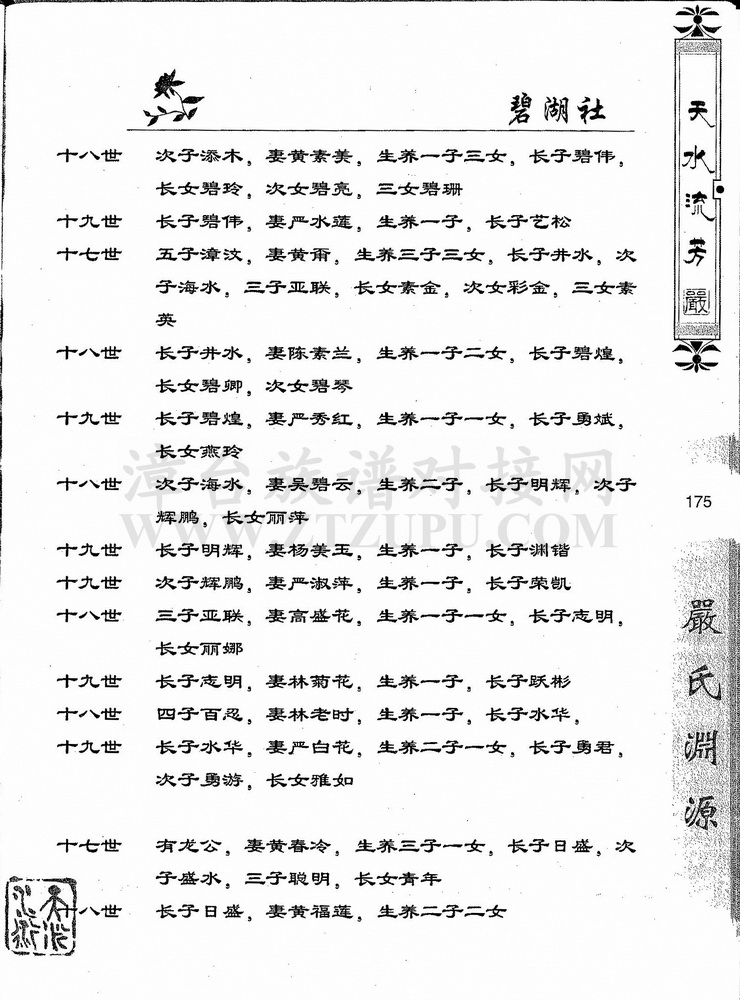 碧湖社
十八世 次子添木，妻黄素美，生养一子三女，长子碧伟，
长女碧玲，次女碧亮，三女碧珊
十九世 长子碧伟，妻严水莲，生养一子，长子艺松
十七世 五子漳汶，妻黄雨，生养三子三女，长子井水，次
子海水，三子亚联，长女素金，次女彩金，三女素
英
十八世 长子井水，妻陈素兰，生养一子二女，长子碧煌，
长女碧卿，次女碧琴
十九世 长子碧煌，妻严秀红，生养一子一女，长子勇斌，
长女燕玲
十八世 次子海水，妻吴碧云，生养二子，长子明辉，次子
辉鹏，长女丽萍
十九世 长子明辉，妻杨美玉，生养一子，长子渊锴
十九世 次子辉鹏，妻严淑萍，生养一子，长子荣凯
十八世 三子亚联，妻高盛花，生养一子一女，长子志明，
长女丽娜
十九世 长子志明，妻林菊花，生养一子，长子跃彬
十八世 四子百忍，妻林老时，生养一子，长子水华，
十九世 长子水华，妻严白花，生养二子一女，长子勇君，
次子勇游，长女雅如
十七世 有龙公，妻黄春冷，生养三子一女，长子日盛，次
子盛水，三子聪明，长女青年
十八世 长子日盛，妻黄福莲，生养二子二女
天水流芳
嚴
175
嚴氏淵源
漳台族谱对接网
WWW.ZTZUPU.COM